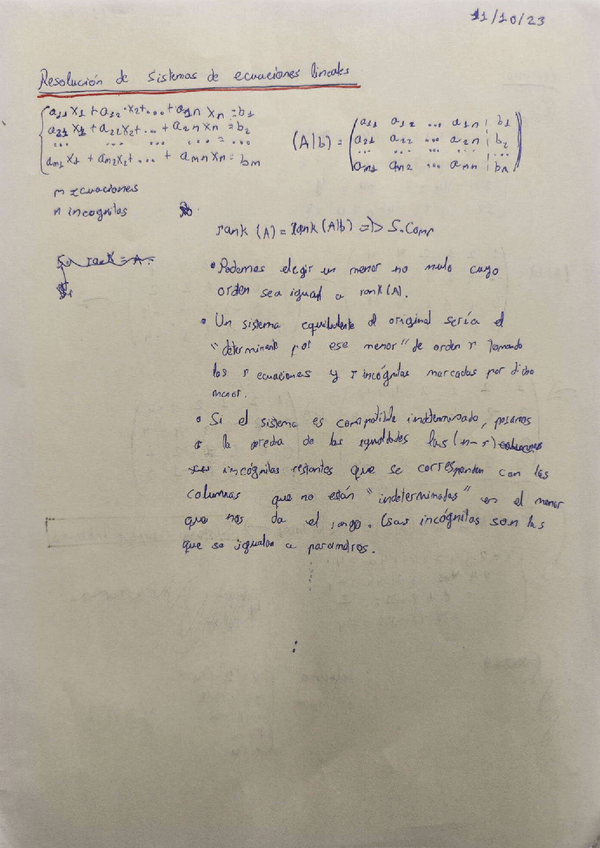 11/10/23
Resolución de sistemas de ecuaciones lineales
a11 x1 + a12 · x2 + ... + a1n xn = b1
a21 x1 + a22 x2 + ... + a2n xn = b2
... ... ... = ...
am1 x1 + am2 x2 + ... + amn xn = bm
(A|b) =
a11 a12 ... a1n | b1
a21 a22 ... a2n | b2
... ... ... ...
am1 am2 ... amn | bm
m ecuaciones
n incognitas
rank (A) = rank (A|b) => S.Comp
rank = A.
• Podemos elegir un menor no nulo cuyo
orden sea igual a rank(A).
• Un sistema equivalente al original sería el
"determinante por ese menor" de orden r tomando
los r ecuaciones y r incógnitas marcadas por dicho
menor.
• Si el sistema es compatible indeterminado, pasamos
a la derecha de las igualdades las (n-r)
incógnitas restantes que se corresponden con las
columnas que no están "indeterminadas" en el menor
que nos da el rango. Esas incógnitas son las
que se igualan a parámetros.